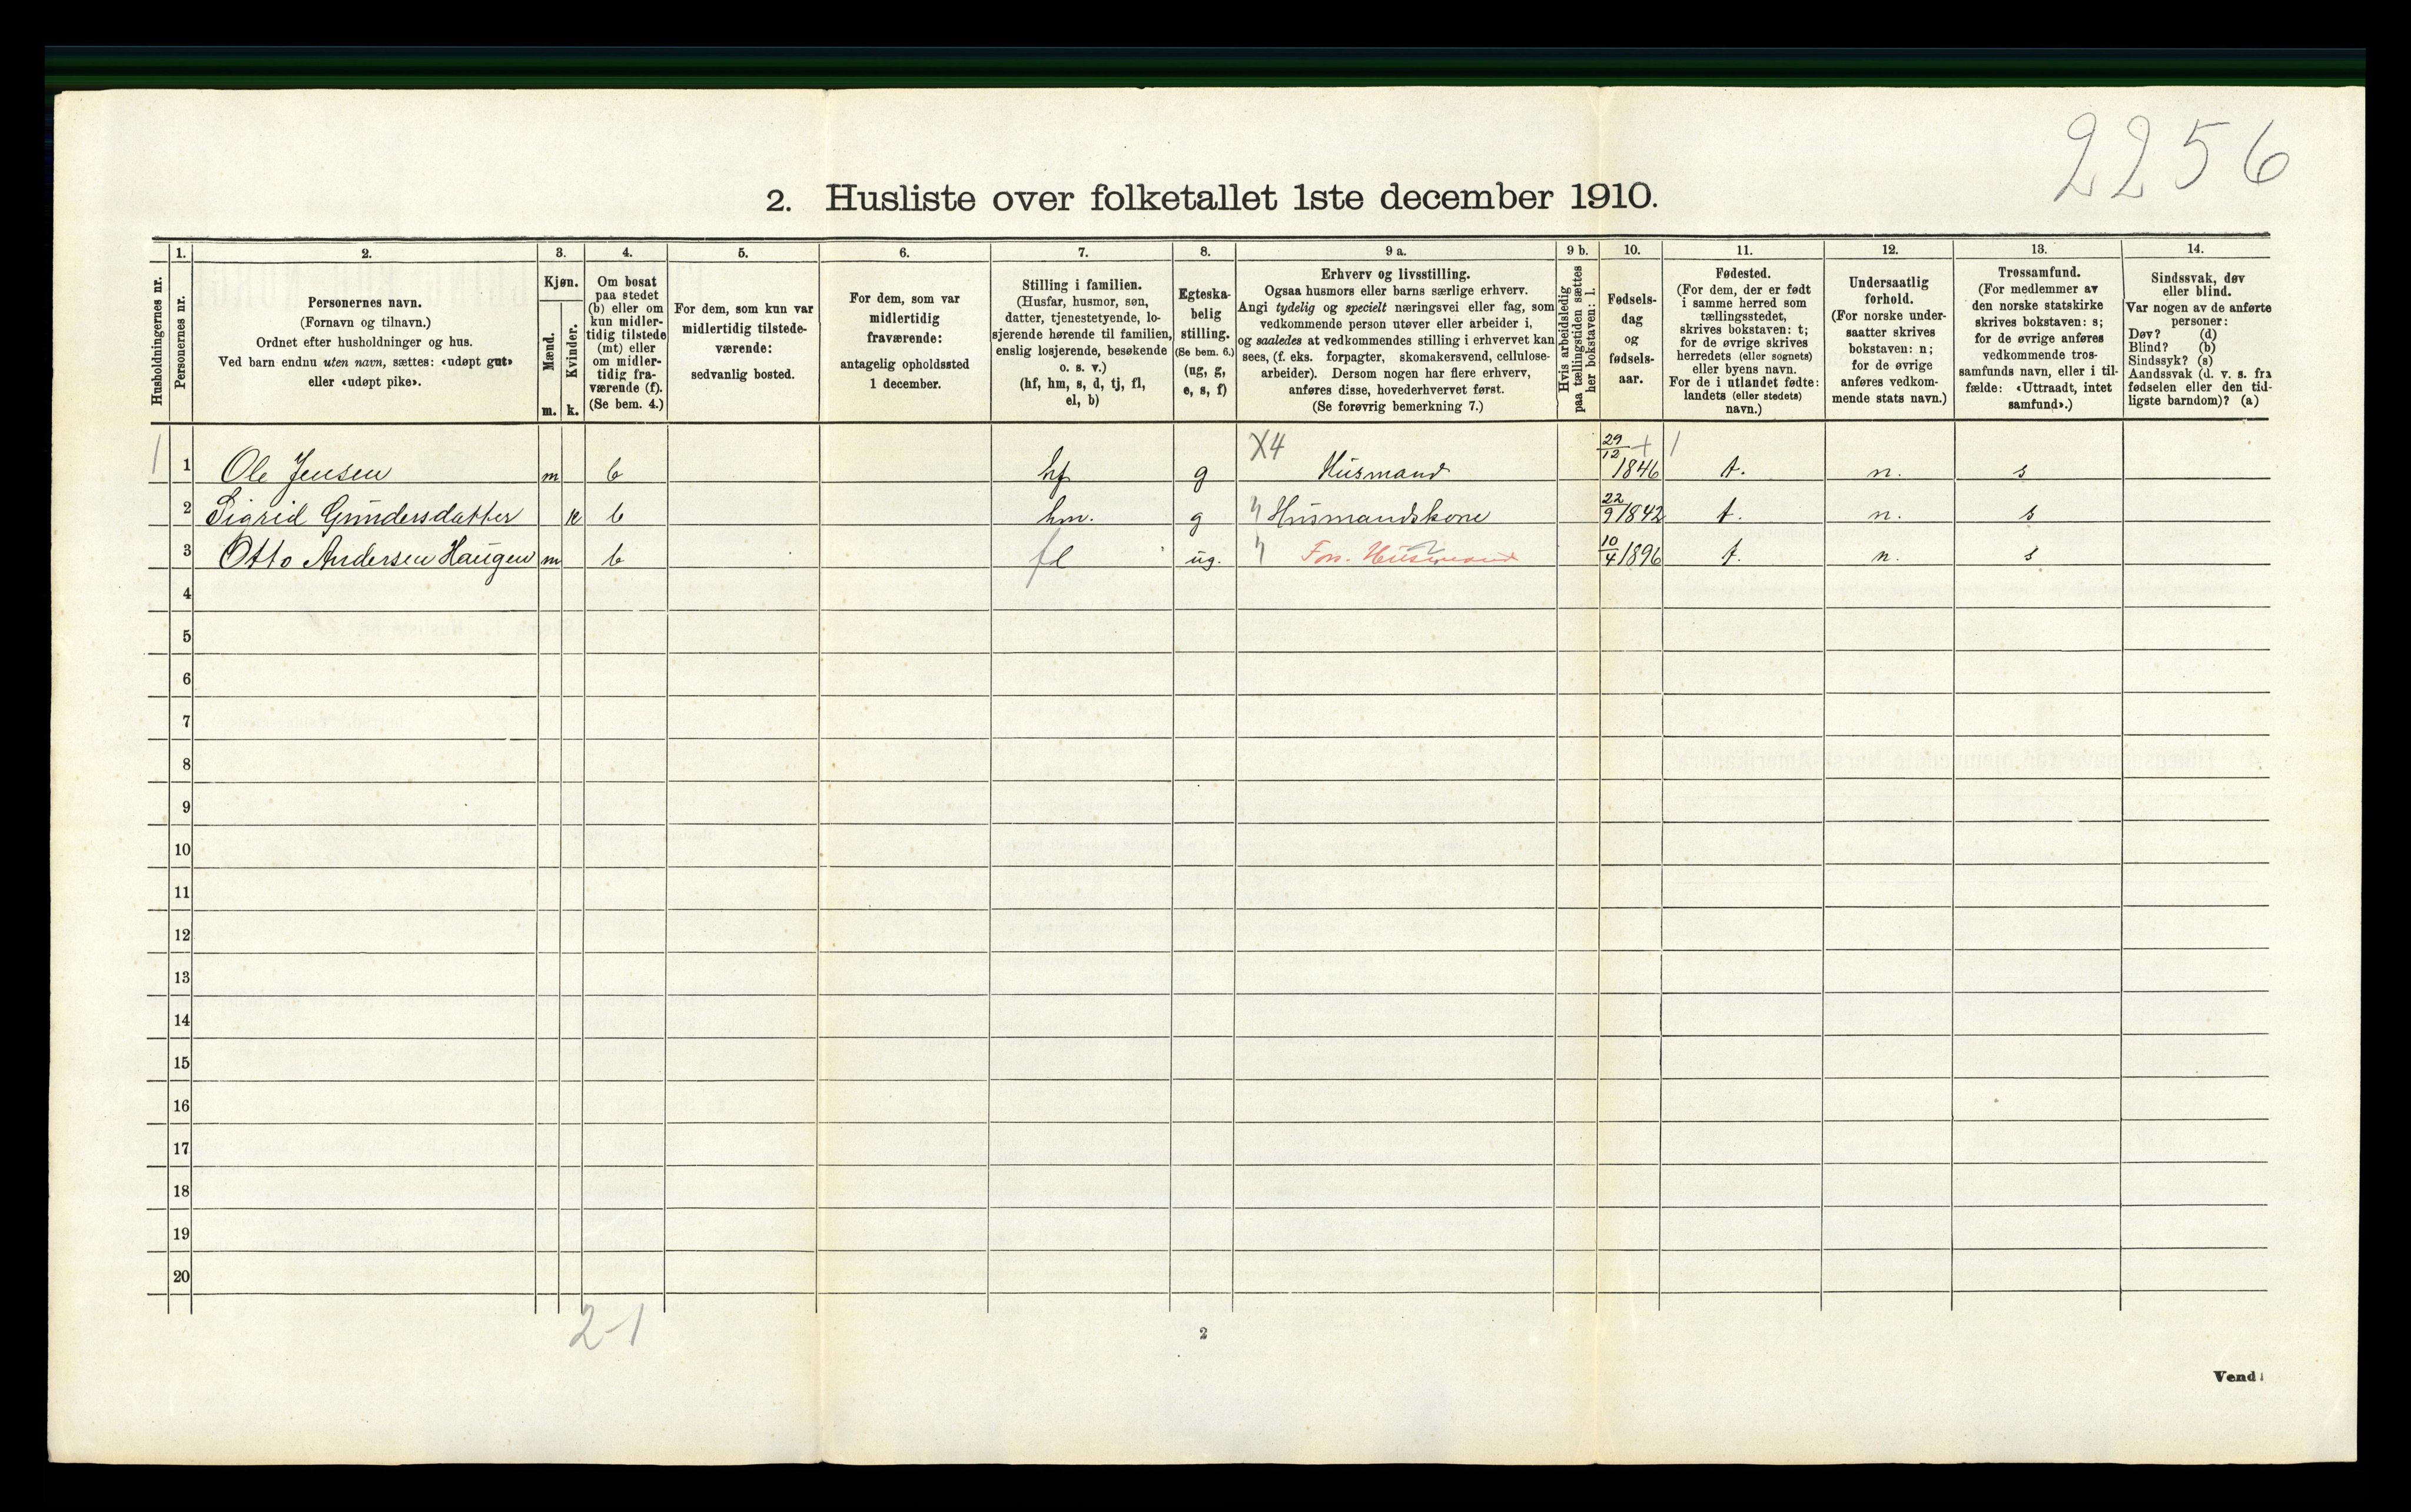 2256
2. Husliste over folketallet 1ste december 1910.
1. 2. 3. 4. 5. 6. 7. 8. 9 a. 9 b. 10. 11. 12. 13. 14.
Husholdningernes nr.
Personernes nr.
Personernes navn.
(Fornavn og tilnavn.)
Ordnet efter husholdninger og hus.
Ved barn endnu uten navn, sættes: «udøpt gut»
eller «udøpt pike».
Kjøn.
Mænd.
m.
Kvinder.
k.
Om bosat
paa stedet
(b) eller om
kun midler-
tidig tilstede
(mt) eller
om midler-
tidig fra-
værende (f).
(Se bem. 4.)
For dem, som kun var
midlertidig tilstede-
værende:
sedvanlig bosted.
For dem, som var
midlertidig
fraværende:
antagelig opholdssted
1 december.
Stilling i familien.
(Husfar, husmor, søn,
datter, tjenestetyende, lo-
sjerende hørende til familien,
enslig losjerende, besøkende
o. s. v.)
(hf, hm, s, d, tj, fl,
el, b)
Egteska-
belig
stilling.
(Se bem. 6.)
(ug, g,
e, s, f)
Erhverv og livsstilling.
Ogsaa husmors eller barns særlige erhverv.
Angi tydelig og specielt næringsvei eller fag, som
vedkommende person utøver eller arbeider i,
og saaledes at vedkommendes stilling i erhvervet kan
sees, (f. eks. forpagter, skomakersvend, cellulose-
arbeider). Dersom nogen har flere erhverv,
anføres disse, hovederhvervet først.
(Se forøvrig bemerkning 7.)
Hvis arbeidsledig
paa tællingstiden sættes
her bokstaven: l.
Fødsels-
dag
og
fødsels-
aar.
Fødested.
(For dem, der er født
i samme herred som
tællingsstedet,
skrives bokstaven: t;
for de øvrige skrives
herredets (eller sognets)
eller byens navn.
For de i utlandet fødte:
landets (eller stedets)
navn.)
Undersaatlig
forhold.
(For norske under-
saatter skrives
bokstaven: n;
for de øvrige
anføres vedkom-
mende stats navn.)
Trossamfund.
(For medlemmer av
den norske statskirke
skrives bokstaven: s;
for de øvrige anføres
vedkommende tros-
samfunds navn, eller i til-
fælde: «Uttraadt, intet
samfund».)
Sindssvak, døv
eller blind.
Var nogen av de anførte
personer:
Døv? (d)
Blind? (b)
Sindssyk? (s)
Aandssvak (d. v. s. fra
fødselen eller den tid-
ligste barndom)? (a)
1 1 Ole Jensen m b hf g X4 Husmand 29/12 1846 + / t. n. s
2 Sigrid Gundersdatter k b hm. g Husmandskone 22/9 1842 t. n. s
3 Otto Andersen Haugen m b fl ug. Fors. Husmand 10/4 1896 t. n. s
4
5
6
7
8
9
10
11
12
13
14
15
16
17
18
19
20
2-1
2
Vend!